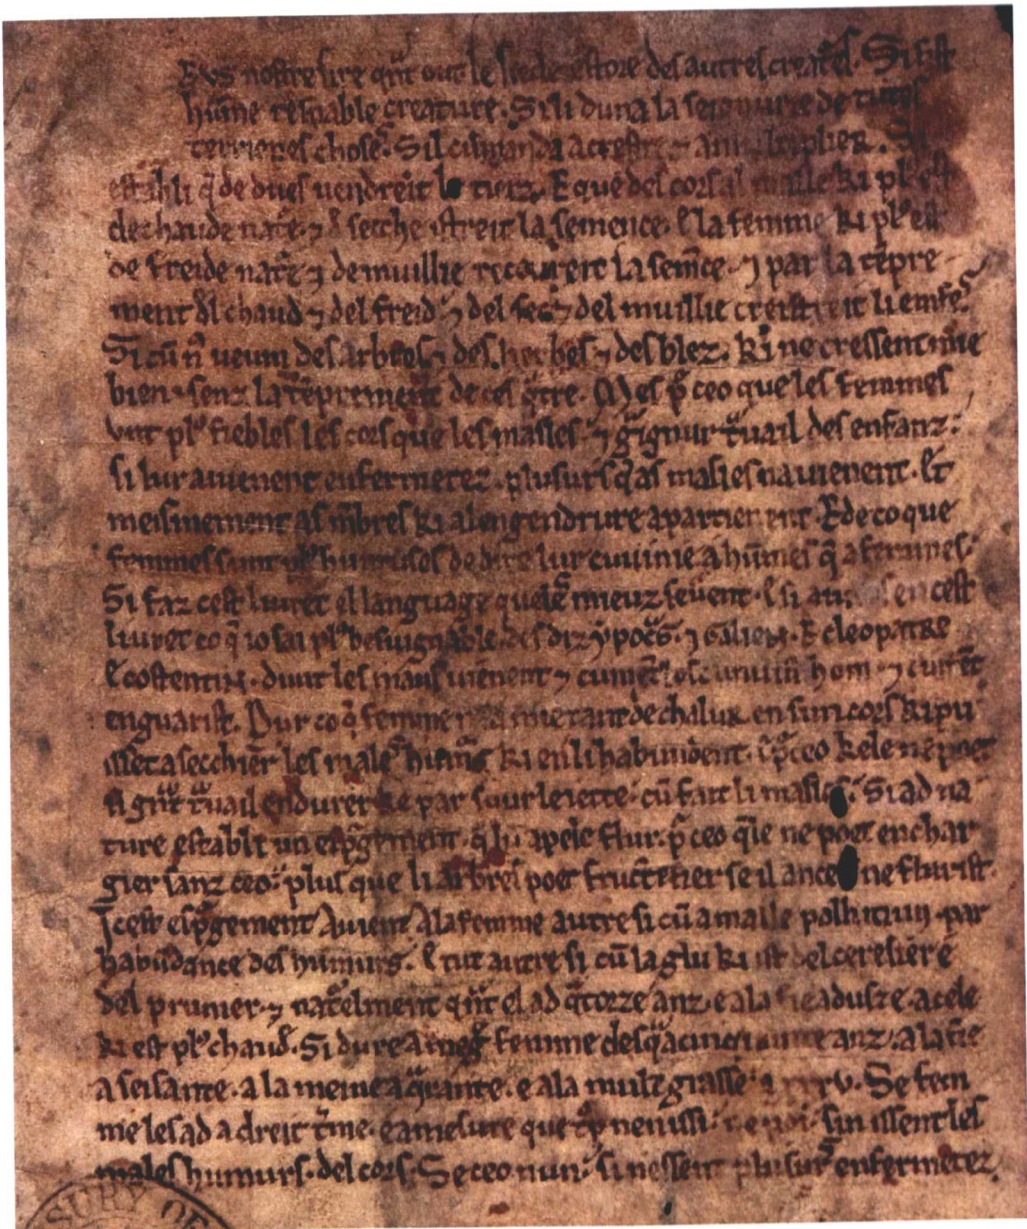 EVS nostre sire qnt out le siecle estore des autres creatͤs. Si fist
hũme resnable creature. Si li duna la seignurie de tutes
terrienes choses. Si lcumanda acrestre ⁊ a multiplier. Si
establi q̃ de dues uendreit le tierz. E que del cors al malle ki plꝰ est
de chaude natͤ. ⁊ d secche istreit la semence. e la femme ki plꝰ est
de freide natͤ ⁊ de muillie receiuere la semẽce. ⁊ par la tẽpre-
ment dl chaud ⁊ del freid ⁊ del sec ⁊ del muillie creistreit li emfes.
Si cũ nꝰ ueum des arbres ⁊ des herbes ⁊ des blez. ki ne cressent mie
bien senz la tẽprement de ces qͣtre. Mes p̃ ceo que les femmes
unt plꝰ fiebles les cors que les masles ⁊ gͣignur tͣuail des enfanz.
si lur auienent enfermetez. plusurs qͣ as masles na uienent. Et
meismement as mẽbres ki al engendrure apartienent. E de co que
femmes sunt plꝰ huntuses de dire lur cuuinie a hũmes q̃ a femmes.
Si faz cest liuret el language que les mieuz seuent. en cest
liuret co q̃ io sai plꝰ besuignable des diz ypocͣs. ⁊ Galien. E cleopatre
E costentin. dunt les maus uienent ⁊ cumẽt hom ⁊ cumẽt
en guarist. Pur co q̃ femme na mie tant de chalur en sun cors ki pu
isset a secchier les males humurs ki en li habundent. ⁊ p̃ ceo kele ne poet
si gͣnt tͣuail endurer ke par suur le iette cũ fait li masles. Si ad na
ture establi un espͥgement. q̃ hũ apele flur. p̃ ceo qͥle ne poet enchar
gier sanz ceo. plus que li arbres poet fructefier se il ance ne flurist.
Icest espͥgement Auient Ala femme autre si cũ a malle pollutiun par
habũdance des humurs. E tut autre si cũ la glu ki ist del ceresiere
del prunier. ⁊ natͤlment qnt el ad qͣtorze anz. e a la fie a dusze. a cele
ki est plꝰ chaud. Si dure a megͤ femme desqͣ a cinquante anz. a la fie
a seisante. a la meine a qͣrante. e a la mult grasse a xxxv. Se fem
me les ad a dreit tͤme. e a mesure que trop nen issi ne poi. sin issent les
males humurs. del cors. Se ceo nun. si nessent plusurs enfermetez
SURP OF